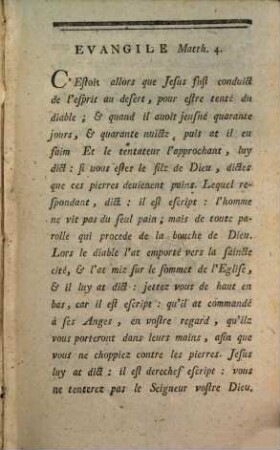 EVANGILE Matth. 4.
C'Estoit allors que Jesus fust conduict
de l'esprit au desert, pour estre tenté du
diable; & quand il avoit jeusné quarante
jours, & quarante nuicts, puis at il eu
faim Et le tentateur l'approchant, luy
dict: si vous estez le filz de Dieu, dictes
que ces pierres deuienent pains. Lequel res-
pondant, dict: il est escript: l'homme
ne vit pas du seul pain; mais de toute pa-
rolle qui procede de la bouche de Dieu.
Lors le diable l'at emporté vers la saincte
cité, & l'at mis sur le sommet de l'Eglise,
& il luy at dict: jettez vous de haut en
bas, car il est escript: qu'il at commandé
à ses Anges, en vostre regard, qu'ilz
vous porteront dans leurs mains, afin que
vous ne choppiez contre les pierres. Jesus
luy at dict: il est derechef escript: vous
ne tenterez pas le Seigneur vostre Dieu.